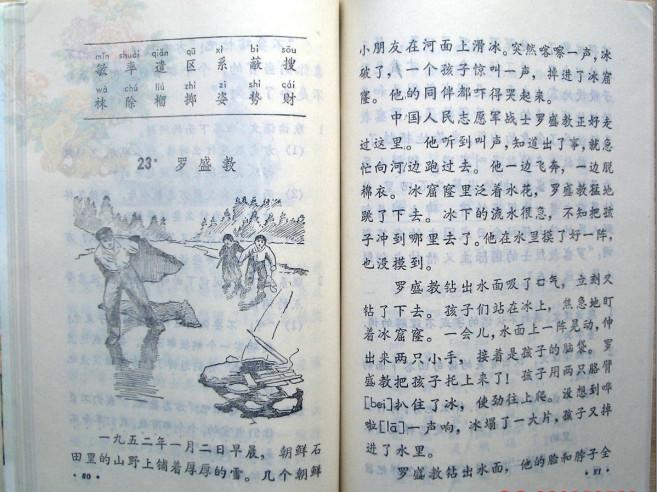 mǐn shuài qiǎn qū xì bì sōu
敏 率 遣 区 系 蔽 搜
wà chú liú zhì zī shì cái
袜 除 榴 掷 姿 势 财
23* 罗盛教
一九五二年一月二日早晨，朝鲜石
田里的山野上铺着厚厚的雪。几个朝鲜
·80·
小朋友在河面上滑冰。突然喀嚓一声，冰
破了，一个孩子惊叫一声，掉进了冰窟
窿。他的同伴都吓得哭起来。
中国人民志愿军战士罗盛教正好走
过这里。他听到叫声，知道出了事，就急
忙向河边跑过去。他一边飞奔，一边脱
棉衣。冰窟窿里泛着水花，罗盛教猛地
跳了下去。冰下的流水很急，不知把孩
子冲到哪里去了。他在水里摸了好一阵，
也没摸到。
罗盛教钻出水面吸了口气，立刻又
钻了下去。孩子们站在冰上，焦急地盯
着冰窟窿。一会儿，水面上一阵晃动，伸
出来两只小手，接着是孩子的脑袋。罗
盛教把孩子托上来了！孩子用两只胳臂
[bei]扒住了冰，使劲往上爬。没想到哗
啦[lā]一声响，冰塌了一大片，孩子又掉
进了水里。
罗盛教钻出水面，他的脸和脖子全
·81·